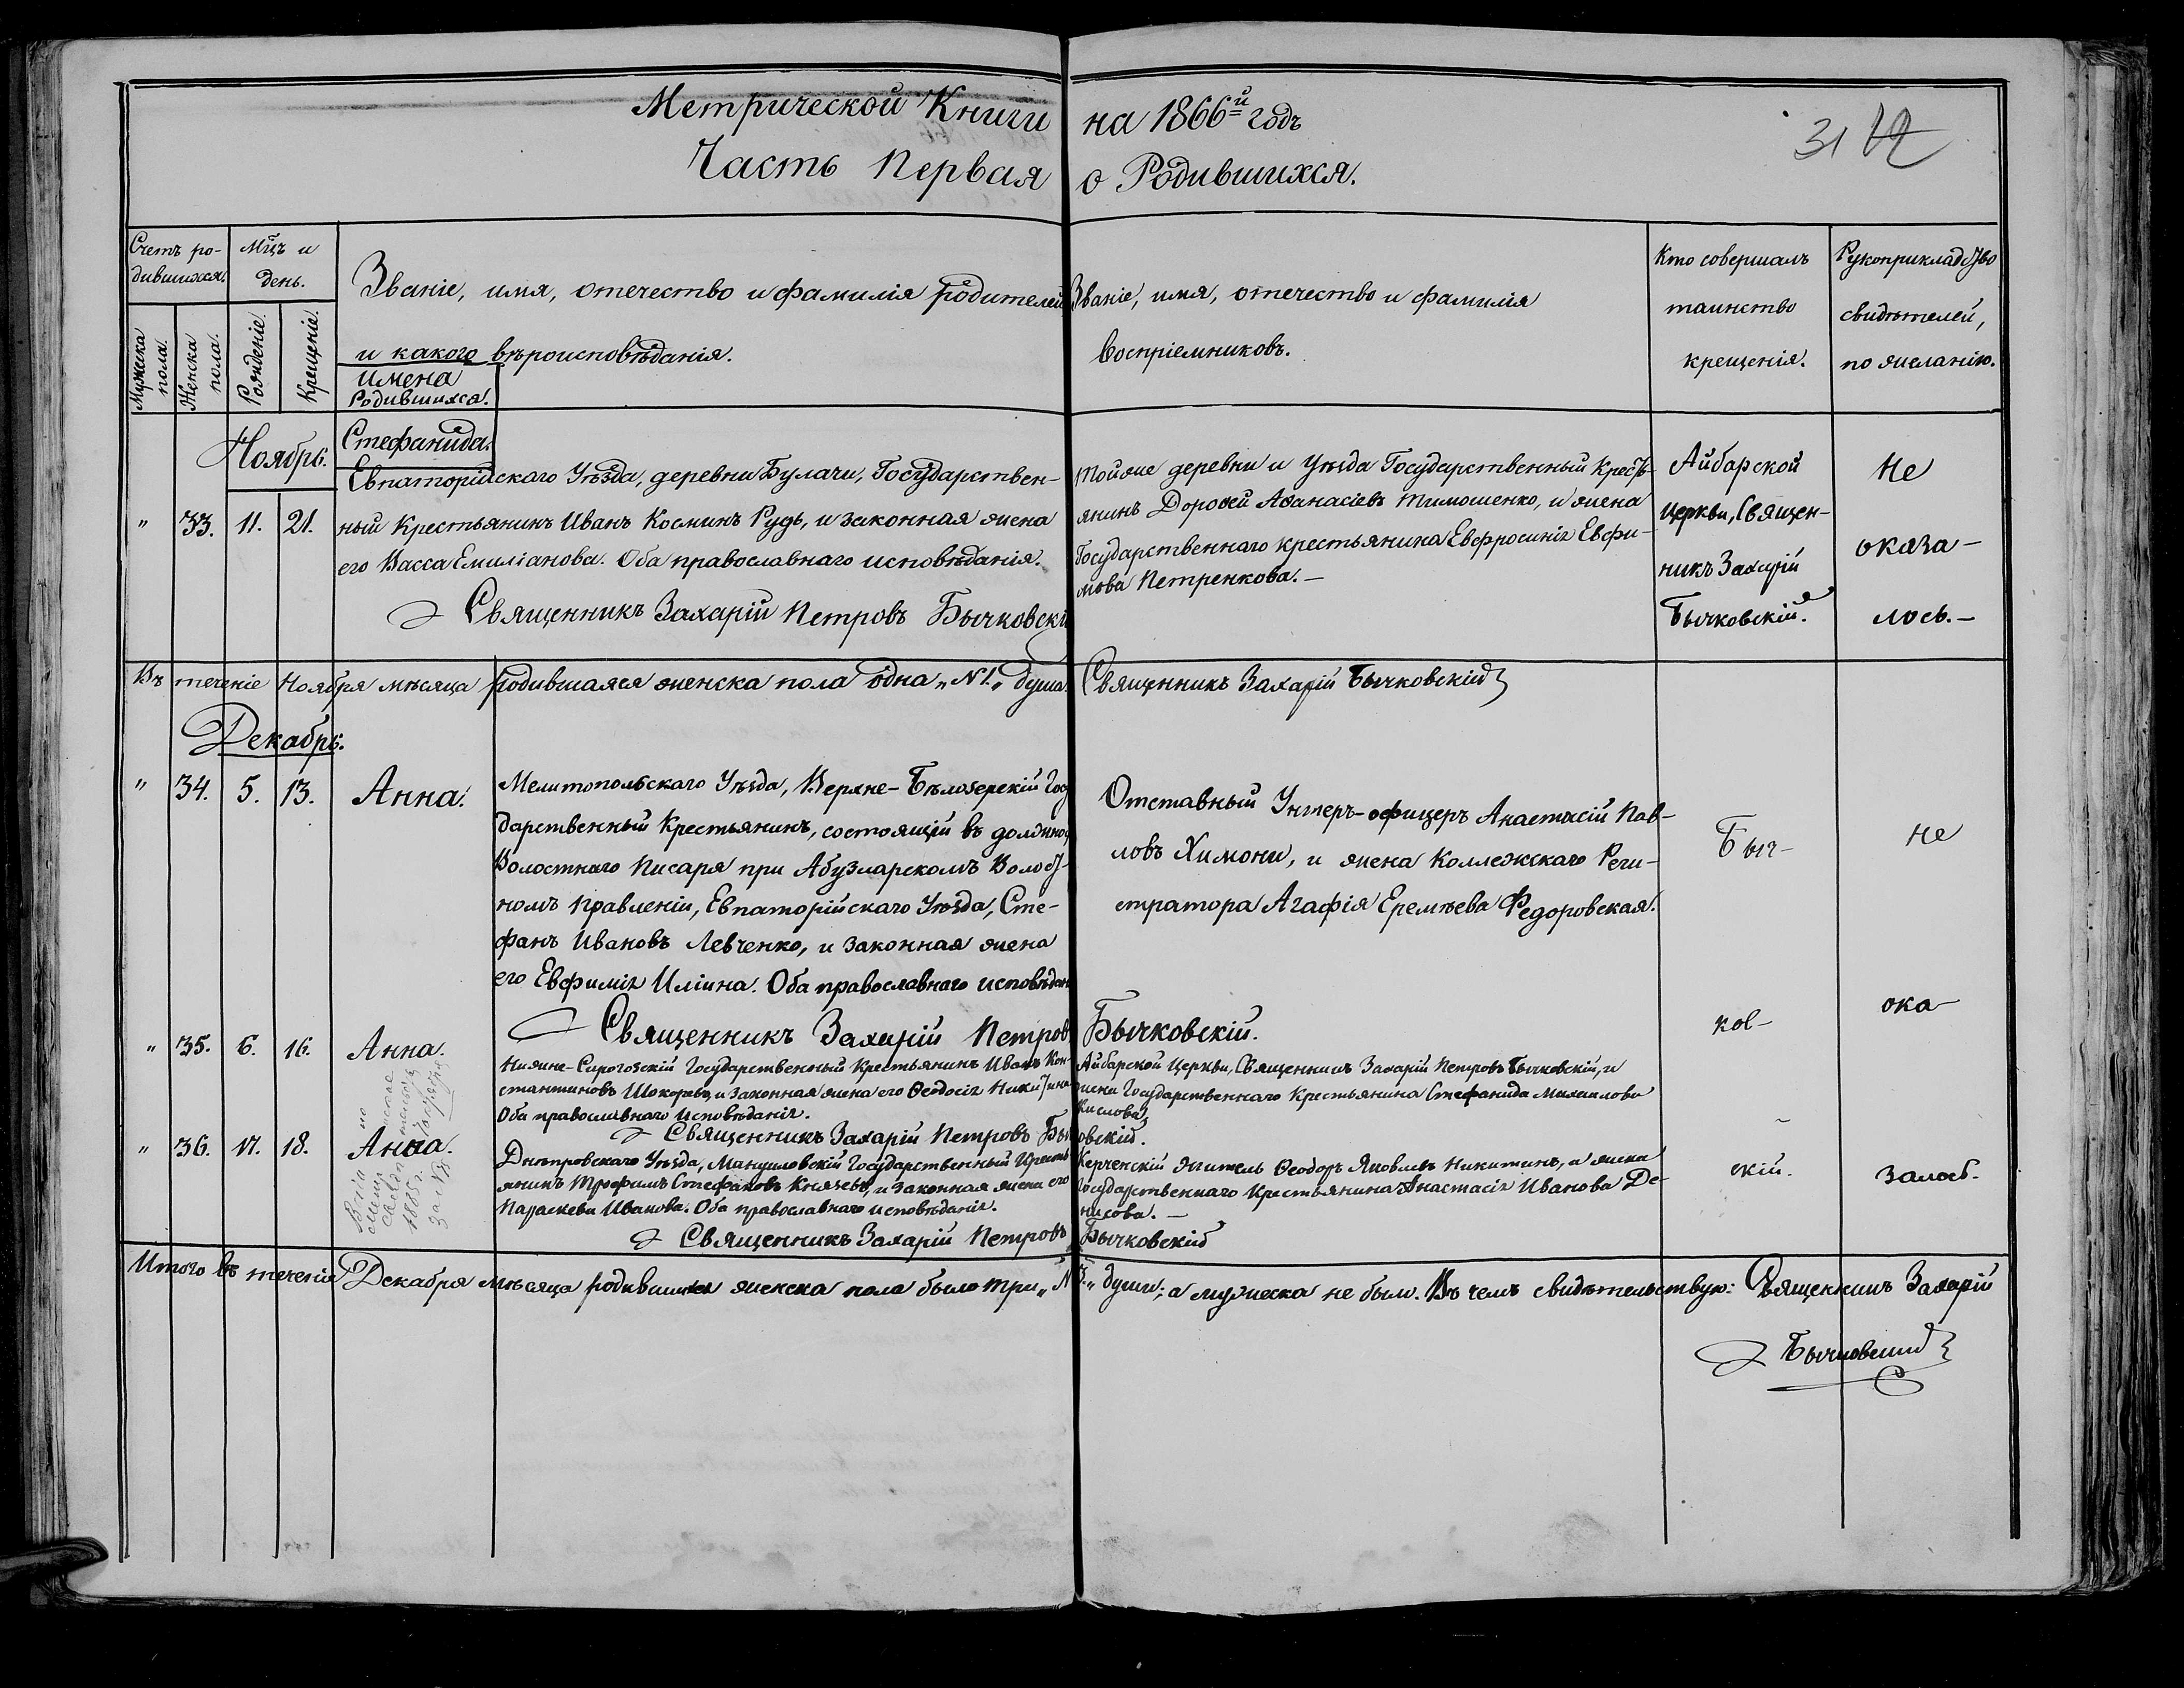 Метрической Книги на 1866й годъ
Часть Первая о Родившихся.
31
Счетъ ро-
дившихся.
Мужеска
пола.
Женска
пола.
Мцъ и
день.
Рожденіе.
Крещеніе.
Званіе, имя, отечество и фамилія родителей
и какого вѣроисповѣданія.
Имена
Родившихся.
Званіе, имя, отечество и фамилія
Воспріемниковъ.
Кто совершалъ
таинство
крещенія.
Рукоприкладство
свидѣтелей,
по желанію.
Ноябрь.
Стефанида.
" 33. 11. 21.
Евпаторійскаго Уѣзда, деревни Булачи, Государствен-
ный Крестьянинъ Иванъ Косминъ Рудь, и законная жена
его Васса Емиліанова. Оба православнаго исповѣданія.
Священникъ Захарій Петровъ Бычковскі
Тойже деревни и Уѣзда Государственный Кресть-
янинъ Дороѳей Аѳанасіевъ Тимошенко, и жена
Государственнаго крестьянина Евфросинія Евфи-
мова Петренкова.—
Айбарской
Церкви, Священ-
никъ Захарій
Бычковскій.
Не
оказа-
лось.—
Въ теченіе Ноября мѣсяца родившаяся женска пола одна „№1.„ душа. Священникъ Захарій Бычковскій
Декабрь.
" 34. 5. 13. Анна.
Мелитопольскаго Уѣзда, Верхне-Бѣлозерскій Госу
дарственный Крестьянинъ, состоящій въ должнос
Волостнаго Писаря при Абузларскомъ Волост-
номъ Правленіи, Евпаторійскаго Уѣзда, Сте-
фанъ Ивановъ Левченко, и законная жена
его Евфимія Иліина. Оба православнаго исповѣдан
Священникъ Захарій Петров Бычковскій.
Отставный Унтеръ-офицеръ Анастасій Пав-
ловъ Химони, и жена Коллежскаго Реги-
стратора Агафія Еремѣева Федоровская.
Быч-
не
" 35. 6. 16. Анна.
Нижне-Сирогозскій Государственный Крестьянинъ Иванъ Кон-
стантиновъ Шокорево, и законная жена его Ѳеодосія Никитина
Оба православнаго исповѣданія.
Священникъ Захарій Петровъ Бычковскій.
Айбарской Церкви, Священникъ Захарій Петровъ Бычковскій, и
жена Государственнаго Крестьянина Стефанида Михаилова
Кислова.
ков-
ока-
" 36. 17. 18. Анна.
Днѣпровскаго Уѣзда, Мануиловскій Государственный Кресть
янинъ Трофимъ Стефановъ Князевъ, и законная жена его
Параскева Иванова. Оба православнаго исповѣданія.
Священникъ Захарій Петровъ Бычковскій
Керченскій житель Ѳеодоръ Яковлевъ Никитинъ, и жена
Государственнаго Крестьянина Анастасія Иванова Де-
нисова.—
скій.
залось.
1885 г.
за №
Итого въ теченіи Декабря мѣсяца родившихся женска пола было три „№3.„ души; а мужеска не было. Въ чемъ свидѣтельствую: Священникъ Захарій
Бычковскій